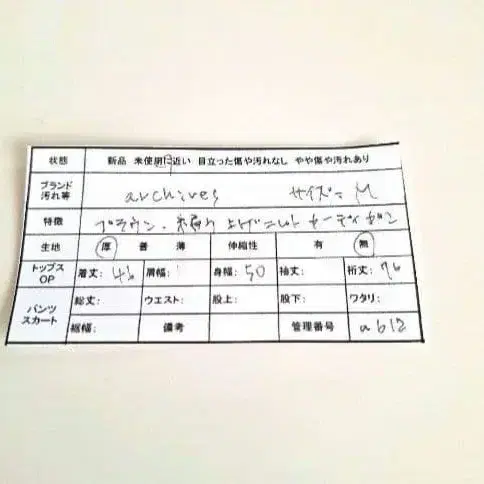 状態 新品 未使用に近い 目立った傷や汚れなし やや傷や汚れあり
ブランド 汚れ等 archives サイズ= M
特徴 ブラウン、 ニット カーディガン
生地 厚 普 薄 伸縮性 有 無
トップス OP 着丈: 46 肩幅: 身幅: 50 袖丈: 裄丈: 76
パンツ スカート 総丈: ウエスト: 股上: 股下: ワタリ:
裾幅: 備考 管理番号 ab12